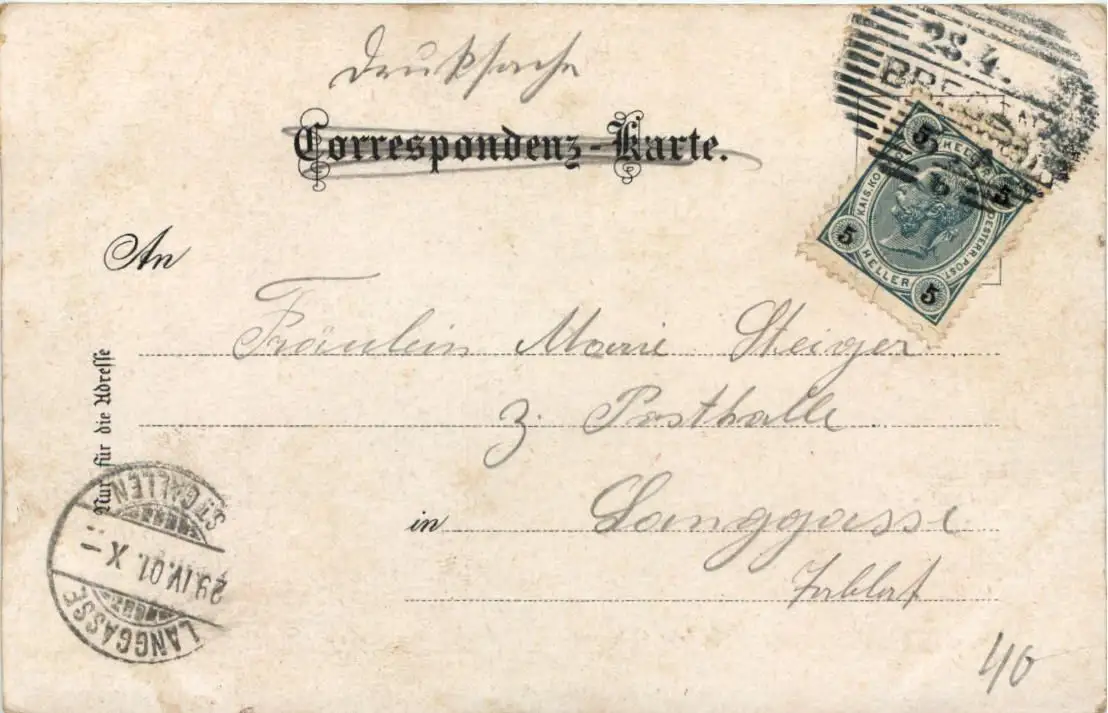 Drucksache
Correspondenz-Karte.
28.4.
BREGENZ
5 HELLER 5
KAIS. KÖ
OESTERR. POST.
5 HELLER 5
An
Fräulein Marie Steiger
z. Posthalle
in Langgasse
Nur für die Adresse
ST. GALLEN
29.IV.01. X–
LANGGASSE
40